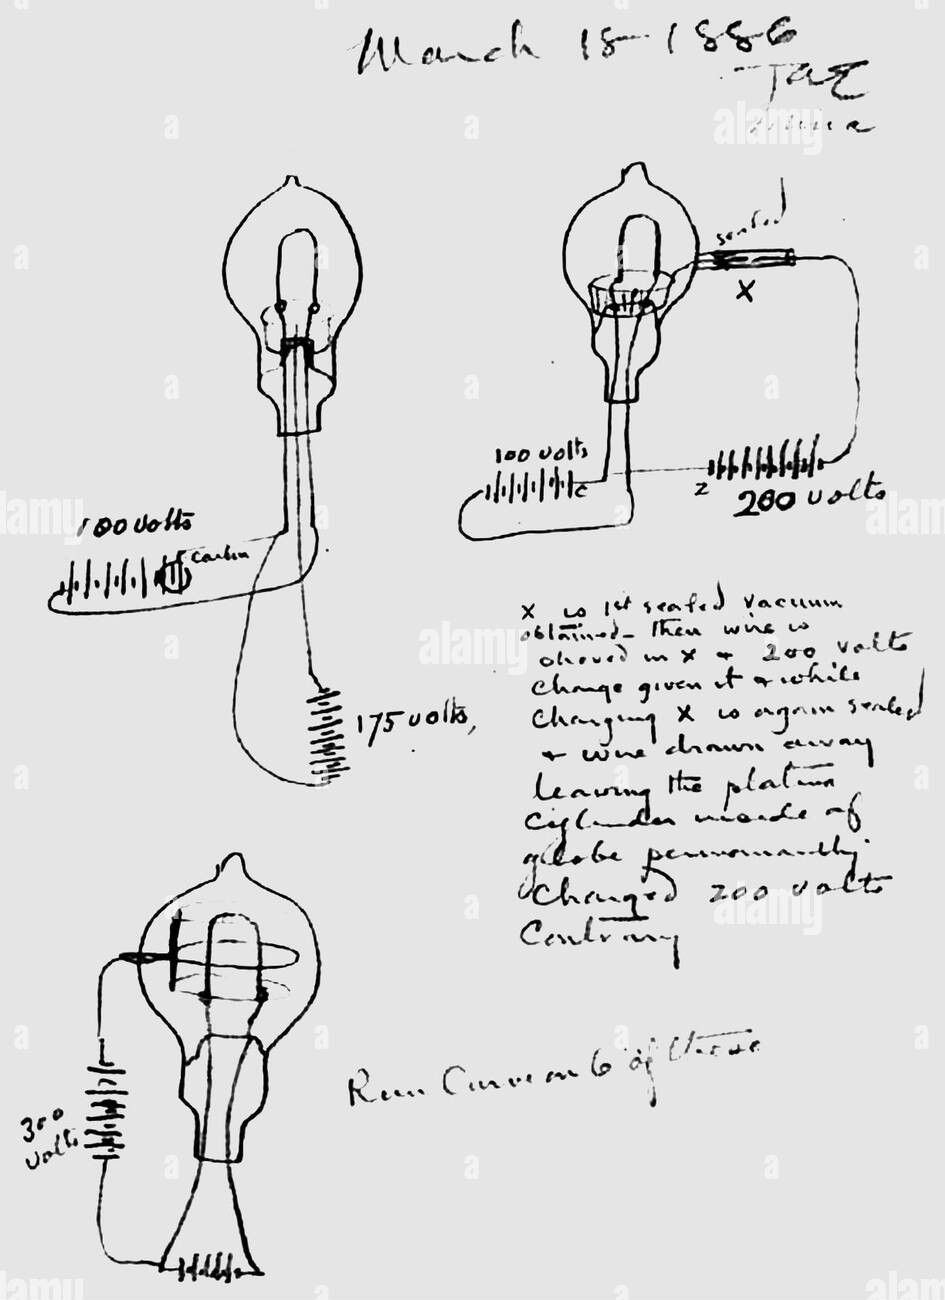 March 15 1886
TAE
100 volts
sealed
X
100 volts
C
Z
200 volts
Carbon
175 volts,
X is 1st sealed vacuum
obtained - then wire is
shoved in X & 200 volts
charge given it & while
charging X is again sealed
& wire drawn away
leaving the platina
cylinder inside of
globe permanantly
charged 200 volts
Contrary
300
volts
Run Curve on 6 of these
alamy
a